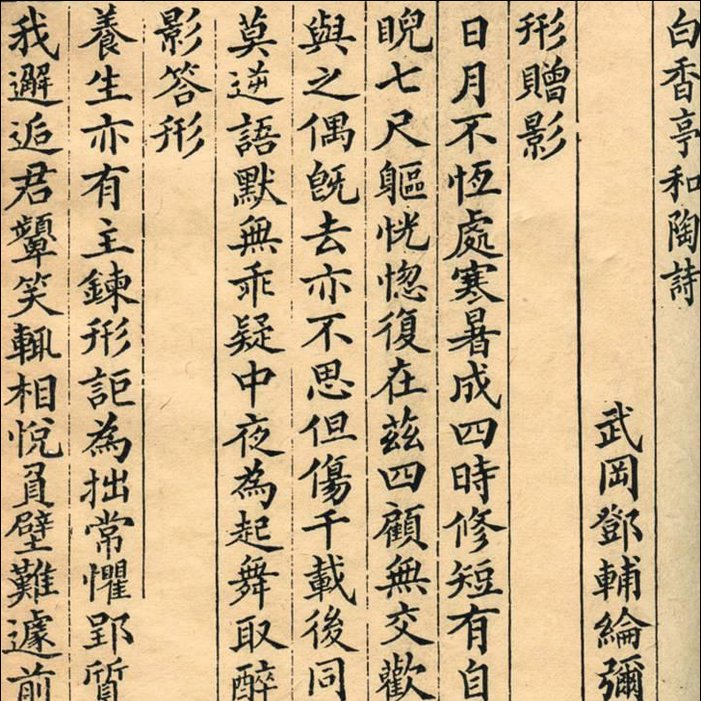 白香亭和陶詩
武岡鄧輔綸彌
形贈影
日月不恆處寒暑成四時修短有自
睨七尺軀恍惚復在茲四顧無交歡
與之偶既去亦不思但傷千載後同
莫逆語默無乖疑中夜為起舞取醉
影答形
養生亦有主鍊形詎為拙常懼郢質
我邂逅君顰笑輒相悅負壁難遽前